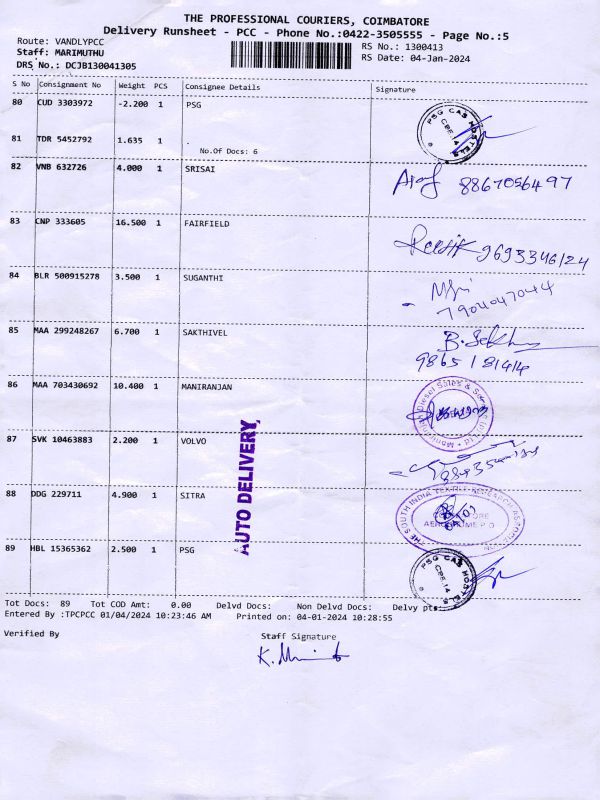 THE PROFESSIONAL COURIERS, COIMBATORE
Delivery Runsheet - PCC - Phone No.:0422-3505555 - Page No.:5
Route: VANDLYPCC
RS No.: 1300413
Staff: MARIMUTHU
RS Date: 04-Jan-2024
DRS No.: DCJB130041305
S No Consignment No Weight PCS Consignee Details Signature
80 CUD 3303972 -2.200 1 PSG
PSG CAS HOSTELS
CPE.14
81 TDR 5452792 1.635 1 .
No.Of Docs: 6
82 VNB 632726 4.000 1 SRISAI
8867056497
83 CNP 333605 16.500 1 FAIRFIELD
9693346124
84 BLR 500915278 3.500 1 SUGANTHI
7904047044
85 MAA 299248267 6.700 1 SAKTHIVEL
86 MAA 703430692 10.400 1 MANIRANJAN
87 SVK 10463883 2.200 1 VOLVO
AUTO DELIVERY
88 DDG 229711 4.900 1 SITRA
THE SOUTH INDIA TEXTILE RESEARCH ASSOCIATION
AERODROME P O
89 HBL 15365362 2.500 1 PSG
PSG CAS HOSTELS
CPE.14
Tot Docs: 89 Tot COD Amt: 0.00 Delvd Docs: Non Delvd Docs: Delvy pts:
Entered By :TPCPCC 01/04/2024 10:23:46 AM Printed on: 04-01-2024 10:28:55
Verified By
Staff Signature